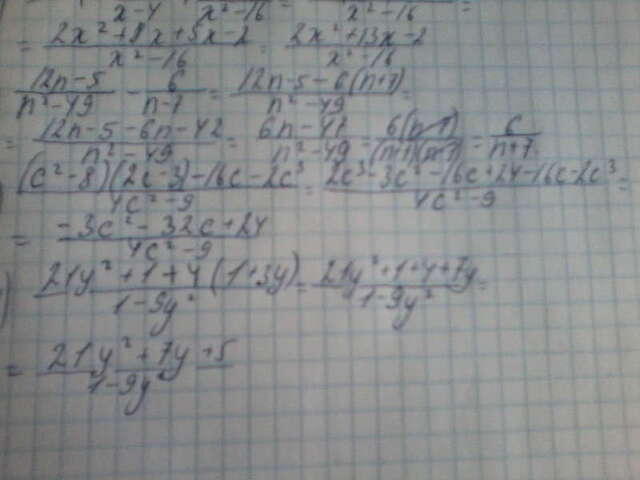 x-4 x²-16 = x²-16 =
= (2x²+8x+5x-2)/(x²-16) = (2x²+13x-2)/(x²-16)
(12n-5)/(n²-49) - 6/(n-7) = (12n-5-6(n+7))/(n²-49) =
= (12n-5-6n-42)/(n²-49) = (6n-47)/(n²-49) = 6(n-7)/((n+7)(n-7)) = 6/(n+7)
((c²-8)(2c-3)-16c-2c³)/(4c²-9) = (2c³-3c²-16c+24-16c-2c³)/(4c²-9) =
= (-3c²-32c+24)/(4c²-9)
(21y²+1+4(1+3y))/(1-9y²) = (21y²+1+4+7y)/(1-9y²) =
= (21y²+7y+5)/(1-9y²)